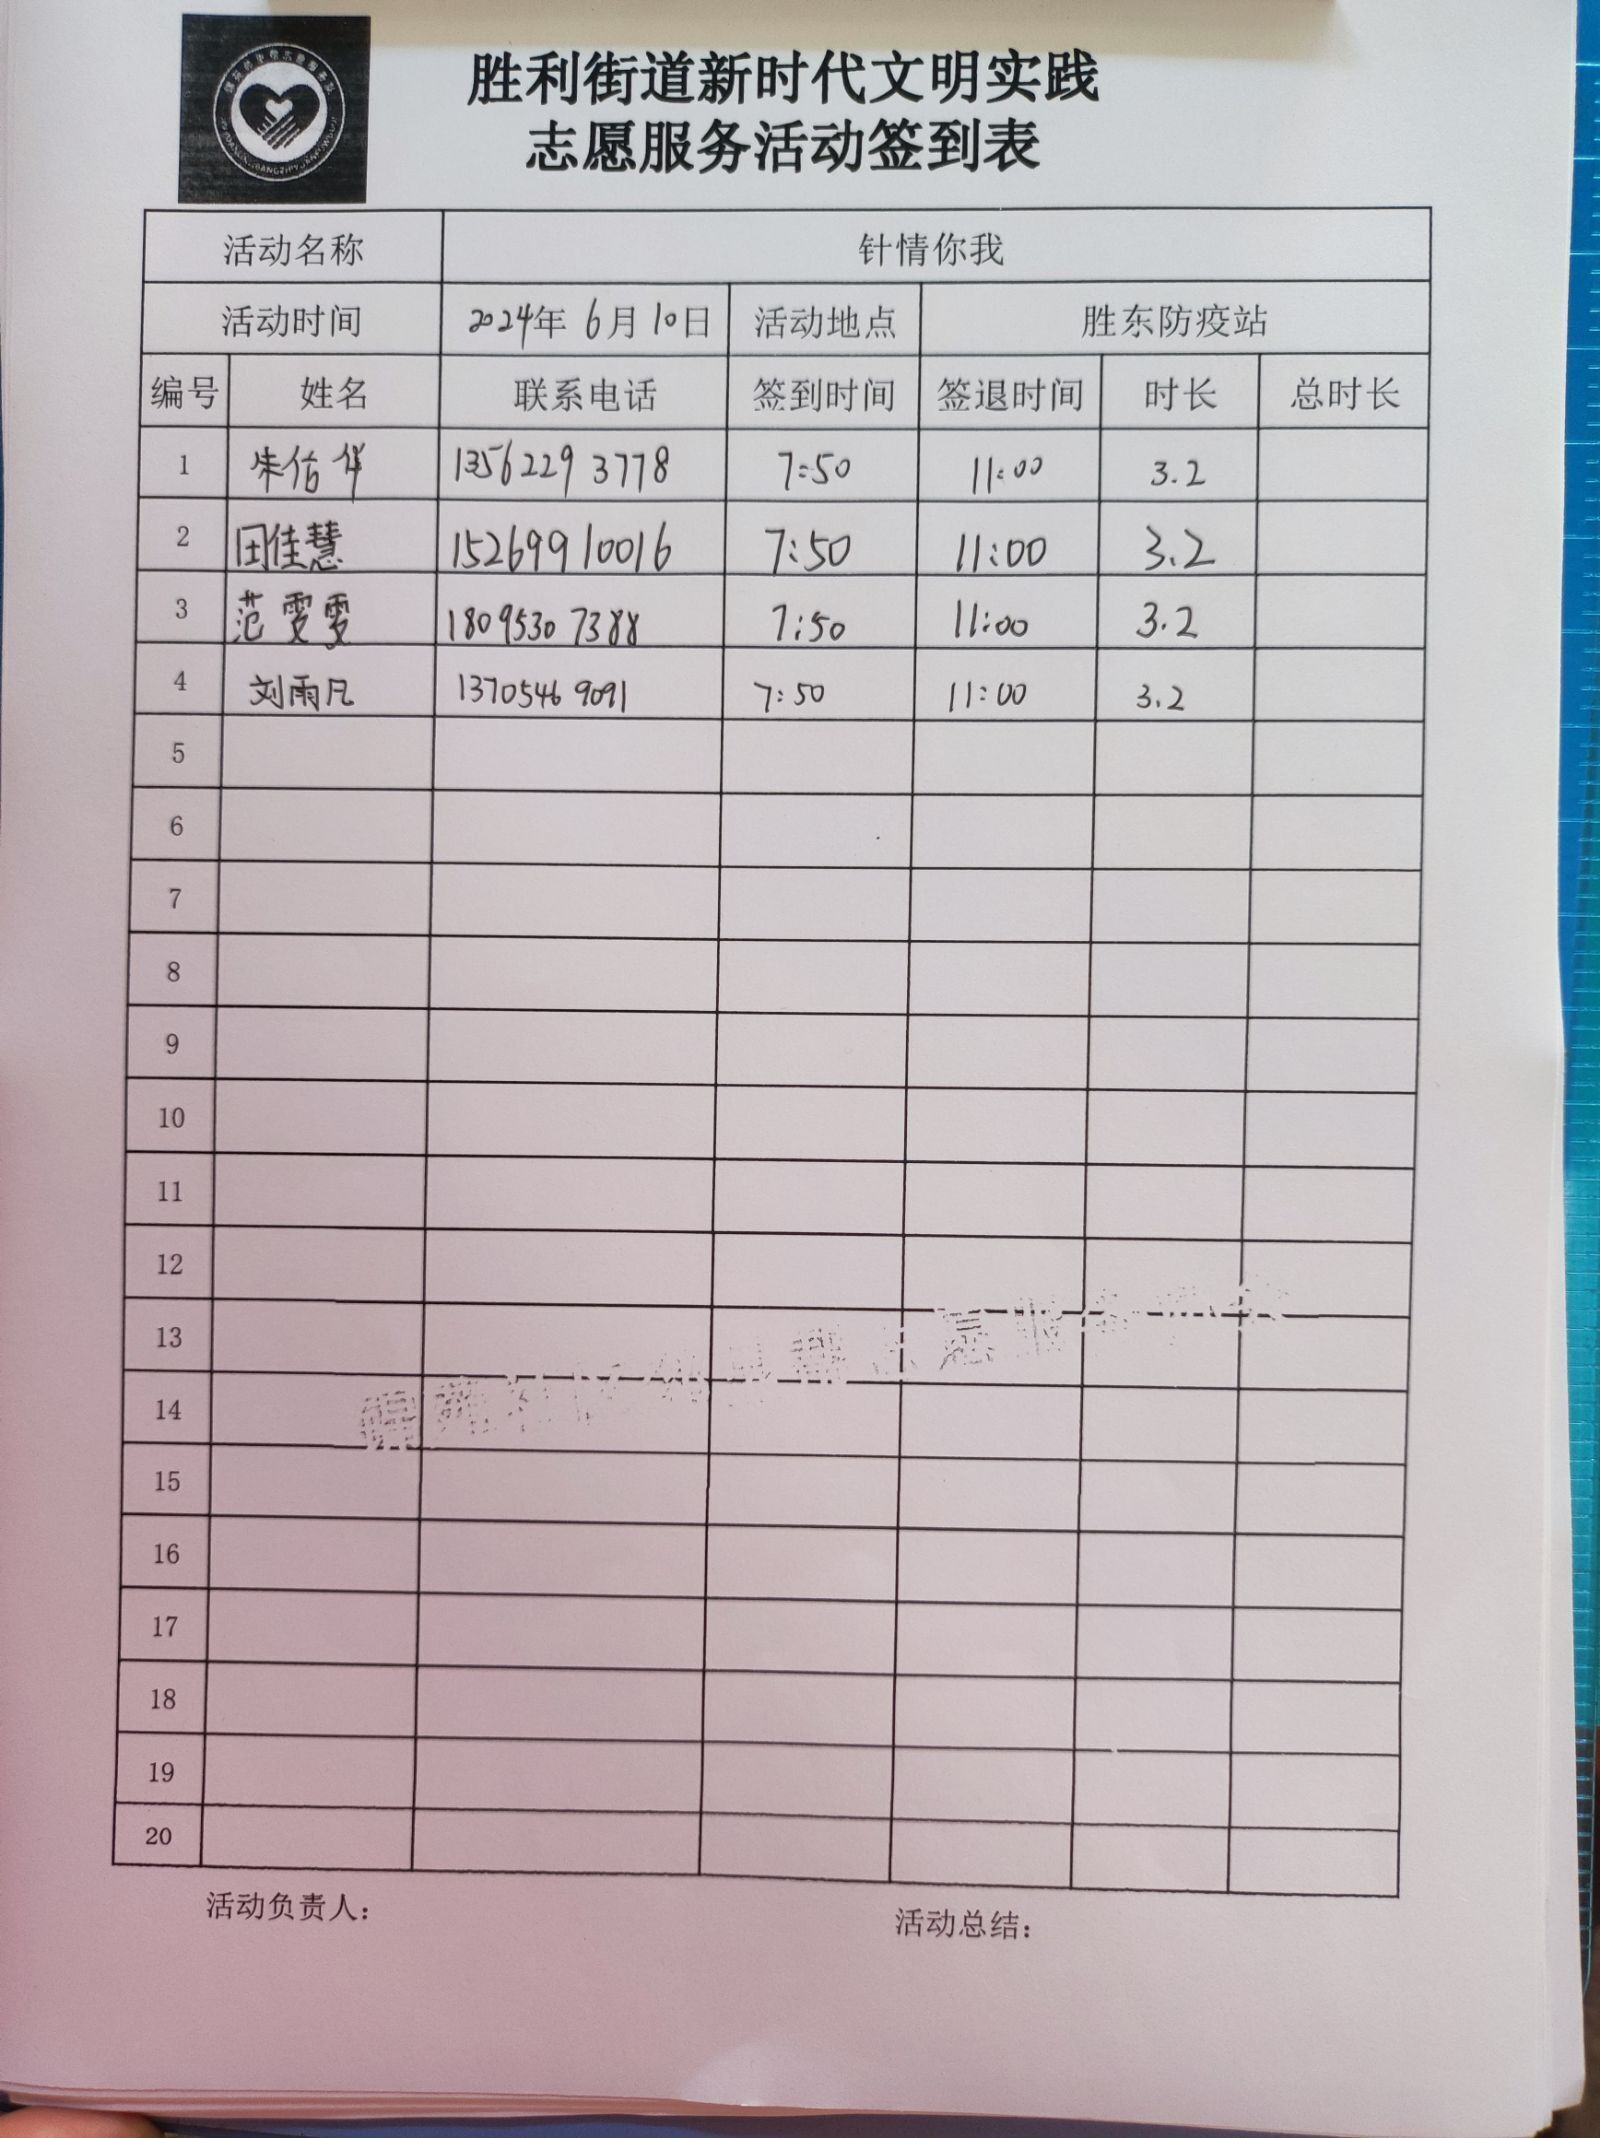 胜利街道新时代文明实践
志愿服务活动签到表
活动名称 针情你我
活动时间 2024年 6月10日 活动地点 胜东防疫站
编号 姓名 联系电话 签到时间 签退时间 时长 总时长
1 朱佑伴 13562293778 7:50 11:00 3.2
2 田佳慧 15269910016 7:50 11:00 3.2
3 范雯雯 18095307388 7:50 11:00 3.2
4 刘雨凡 13705469091 7:50 11:00 3.2
5
6
7
8
9
10
11
12
13
14
15
16
17
18
19
20
活动负责人： 活动总结：